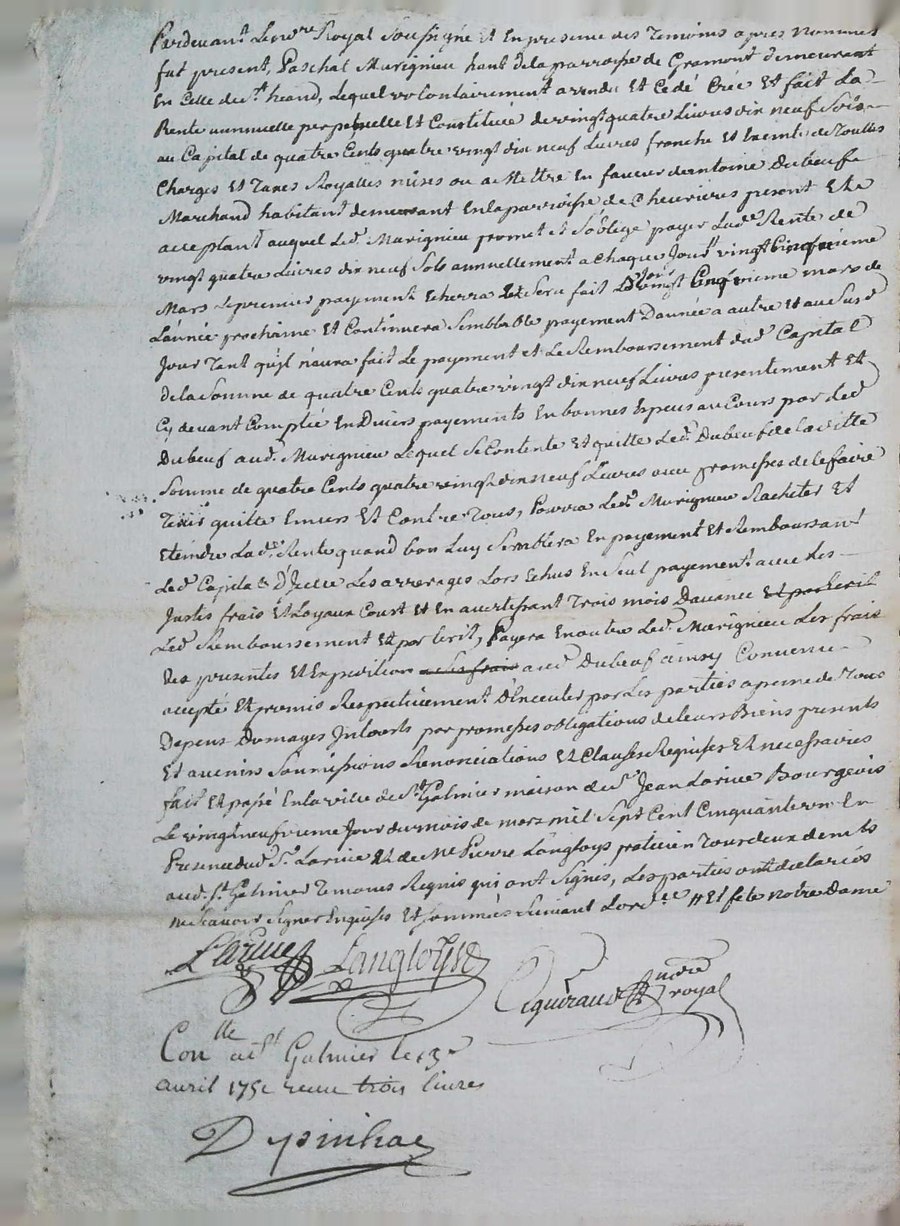 Pardevant Le nore Royal Soussigné Et En presence des Temoins apres Nommes
fut present, Paschal Murignieu hant de la parroisse de Gramont demeurant
En Celle de St heand, Lequel vollontairement a vendu Et Cedé Crée Et fait La
Rente annuelle perpetuelle Et Constituée de vingt quatre Livres dix neuf Sols
au Capital de quatre Cents quatre vingt dix neuf Livres franche Et Exempte de Touttes
Charges Et Taxes Royalles mises ou a Mettre En faveur d'antoine Dubeuf
Marchand habitant demeurant En la parroisse de Cheuvrieres present Et
acceptant auquel Led. Murignieu promet Et S'oblige payer Lade Rente de
vingt quatre Livres dix neuf Sols annuellement a Chaques Jour vingt Cinquieme
Mars Le premier payement Echerra Et Sera fait Led Jour vingt Cinquieme mars de
L'année prochaine Et Continuera Semblable payement D'année a autre Et au Susd
Jour Tant qu'jl n'aura fait Le payement et Le Remboursement dud Capital
de la Somme de quatre Cents quatre vingt dix neuf Livres presentement Et
Cy devant Comptée En Divers payements En bonnes Especes au Cours par Led
Dubeuf aud. Murignieu Lequel Se Contente Et quitte Led. Dubeuf de Laditte
Somme de quatre Cents quatre vingt dix neuf Livres avec promesses de le faire
Tenir quitte Envers Et Contre Tous, Pourra Led. Murignieu Racheter Et
Eteindre Lade Rente quand bon Luy Semblera En payement Et Remboursant
Led Capital & D'Icelle Les arrerages Lors Echus En Seul payement avec Les
Justes frais Et Loyaux Court Et En avertissant Trois mois Davance Et par Ecrit
Led. Remboursement Et par Ecrit, Payera En outre Led. Murignieu Les frais
Des presentes Et Expedition a Ses frais aud Dubeuf ainsy Convenu
accepté Et promis Respectivement D'Executer par Les parties a peine de Tous
Depens Domages Jnterets par promesses obligations de leurs Biens presents
Et avenir Soumissions Renonciations Et Clauses Requises Et necessaires
fait Et passé En la ville de St Galmier maison de Sr Jean Larive Bourgeois
Le vingt neuvieme Jour du mois de mars mil Sept Cent Cinquante un En
Presence dud Sr Larive Et de Me Pierre Langloys praticien Tous deux demts
aud. St Galmier Temoins Requis qui ont Signés, Les parties ont declarées
ne Scavoir Signer Enquises Et Sommées Suivant Lordce // Et fete notre Dame
Larive Langloys
nore royal
Conlle a St Galmier le 13e
avril 1751 receu trois livres
Depinhac